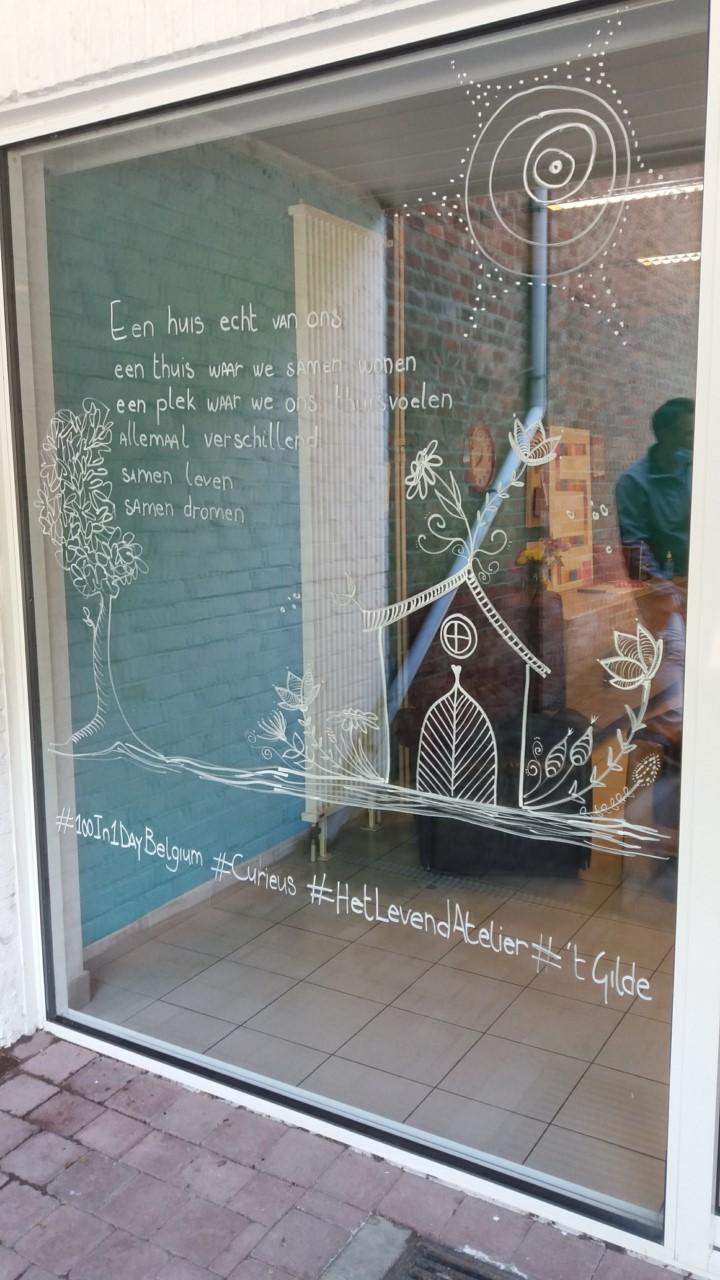 Een huis echt van ons
een thuis waar we samen wonen
een plek waar we ons thuisvoelen
allemaal verschillend
samen leven
samen dromen
#100In1DayBelgium #Curieus #HetLevendAtelier #'t Gilde